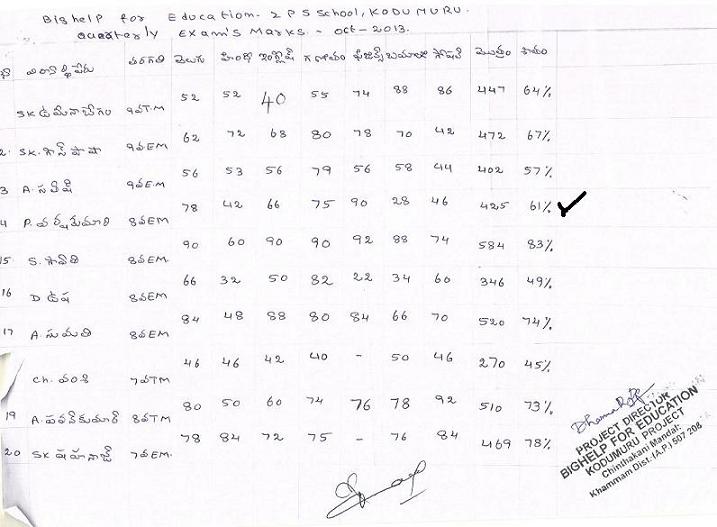 Bighelp for Education. Z P S School, KODUMURU.
Quarterly Exam's Marks. - Oct - 2013.
విద్యార్థిపేరు తరగతి తెలుగు హిందీ ఇంగ్లీష్ గణితం ఫిజిక్స్ సోషల్ మొత్తం శాతం
52 52 40 55 74 88 86 447 64%
SK 9వT.M
62 72 68 80 78 70 42 472 67%
2. SK. 9వEM
56 53 56 79 56 58 44 402 57%
3 A. 9వE.M
78 42 66 75 90 28 46 425 61% ✓
4 P. 8వEM
90 60 90 90 92 88 74 584 83%
15 S. 8వEM
66 32 50 82 22 34 60 346 49%
16 D ఉష 8వEM
84 48 88 80 84 66 70 520 74%
17 A. సుమతి 8వEM
46 46 42 40 - 50 46 270 45%
Ch. వంశి 7వTM
80 50 60 74 76 78 92 510 73%
19 A. పవన్‌కుమార్ 8వTM
78 84 72 75 - 76 84 469 78%
20 SK షహనాజ్ 7వEM.
PROJECT DIRECTOR
BIGHELP FOR EDUCATION
KODUMURU PROJECT
Chinthakani Mandal:
Khammam Dist.(A.P.) 507 208